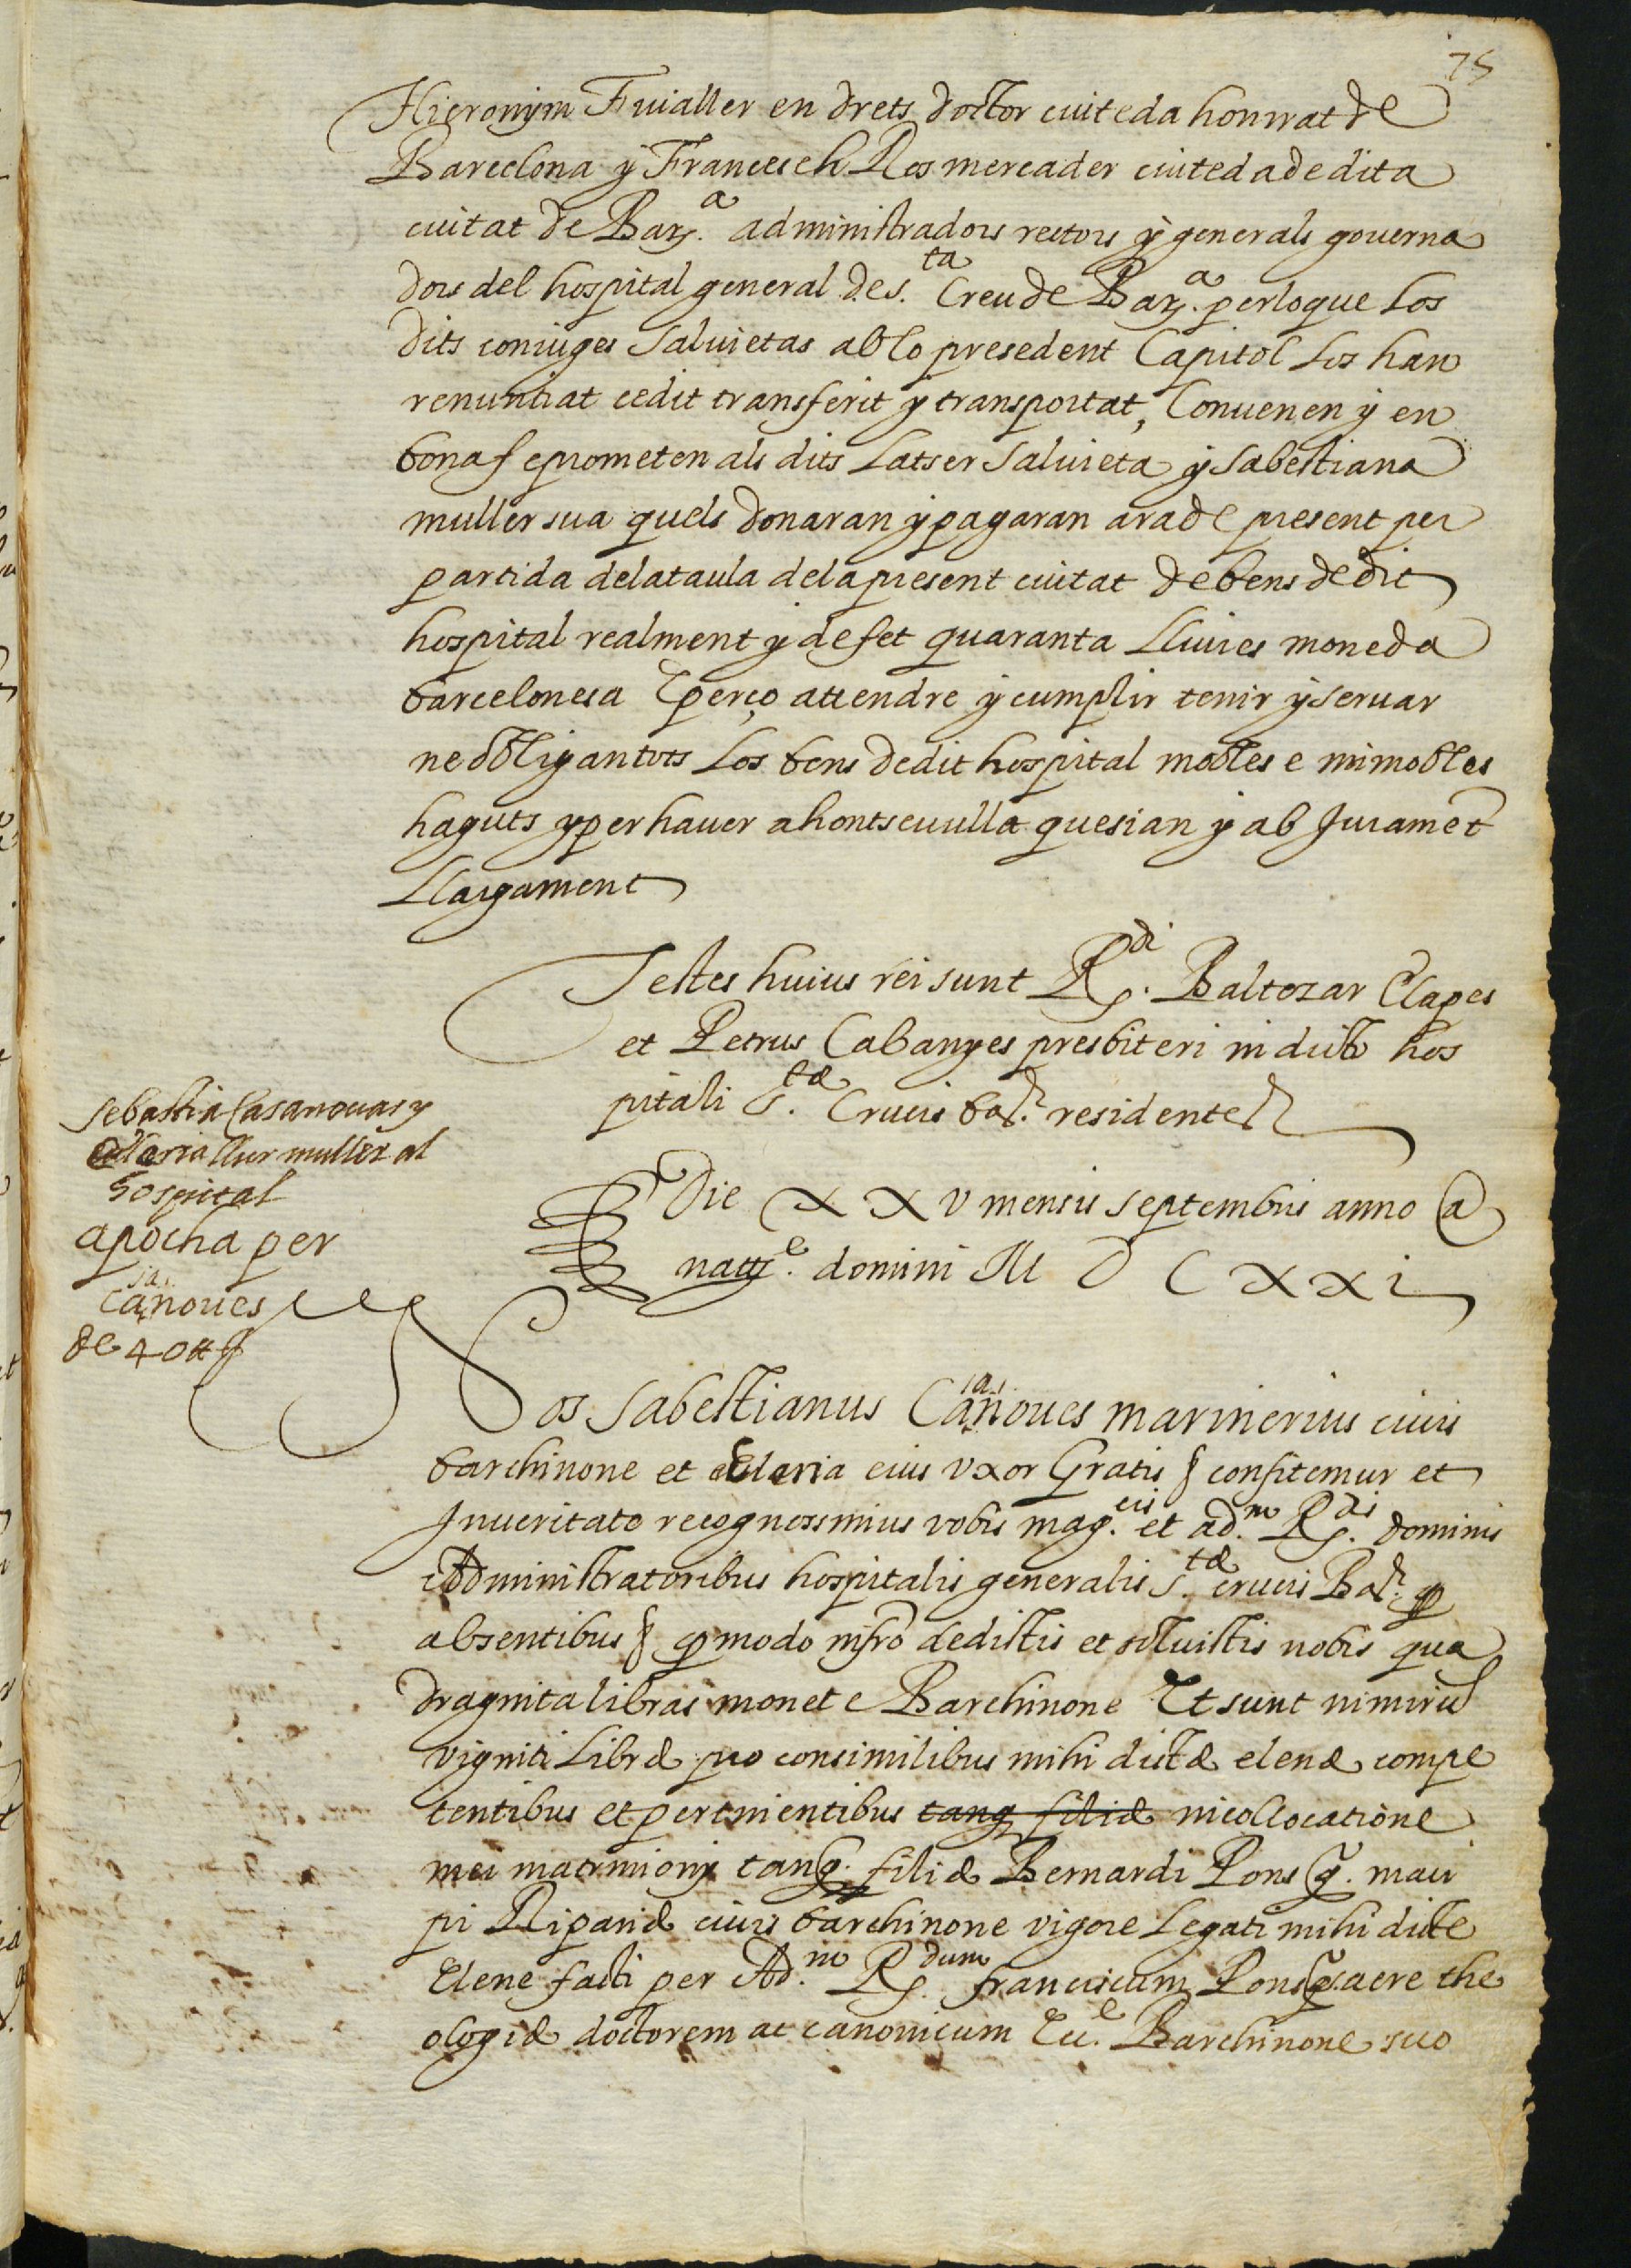 75
Hieronym Fiualler en drets doctor ciuteda honrrat de
Barcelona y Francesch Ros mercader ciutedadedita
ciutat de Bar.a administradors rectors y generals gouerna
dors del hospital general de s.ta Creu de Bar.a perloque los
dits coniuges saluietas ab lo presedent Capitol los han
renuntiat cedit transferit y transportat, Conuenen y en
bonafe prometen als dits Latser Saluieta y Sabestiana
muller sua quels donaran y pagaran arade present per
partida delataula dela present ciutat de bens de dit
hospital realment y de fet quaranta Lliures moneda
barcelonesa E perço attendre y cumplir tenir y seruar
ne obligan tots Los bens dedit hospital mobles e inmobles
haguts y per hauer ahontseuulla quesian y ab Juramet
Llargament
Testes huius rei sunt R.di Baltozar Clapes
et Petrus Cabanyes presbiteri in dicto hos
pitali s.tæ Crucis bar. residentes
Sebastia Casanouas y
llur muller al
hospital
apocha per
Casanoues
de 40 ₶
Die xxv mensis septembris anno a
nat.e domini M D C xxi
Nos Sabestianus Casanoues marinerius ciuis
barchinone et Elena eius vxor Gratis § confitemur et
Inueritate recognossimus vobis mag.cis et ad.m R.dis dominis
Administratoribus hospitalis generalis s.tæ crucis Bar. q
absentibus § q modo infro dedistis et soluistis nobis qua
draginta libras monete Barchinone Et sunt nimiru
viginti Libræ pro consimilibus mihi dictæ elenæ compe
tentibus et pertinientibus tanq filiæ incollocatione
mei matrimonij tanq. filiæ Bernardi Pons q. mau
pi Ripariæ ciuis barchinone vigore Legati mihi dicte
Elene facti per Ad.m R.dum franciscum Pons q. sacre the
ologiæ doctorem ac canonicum Ec.e Barchinone suo